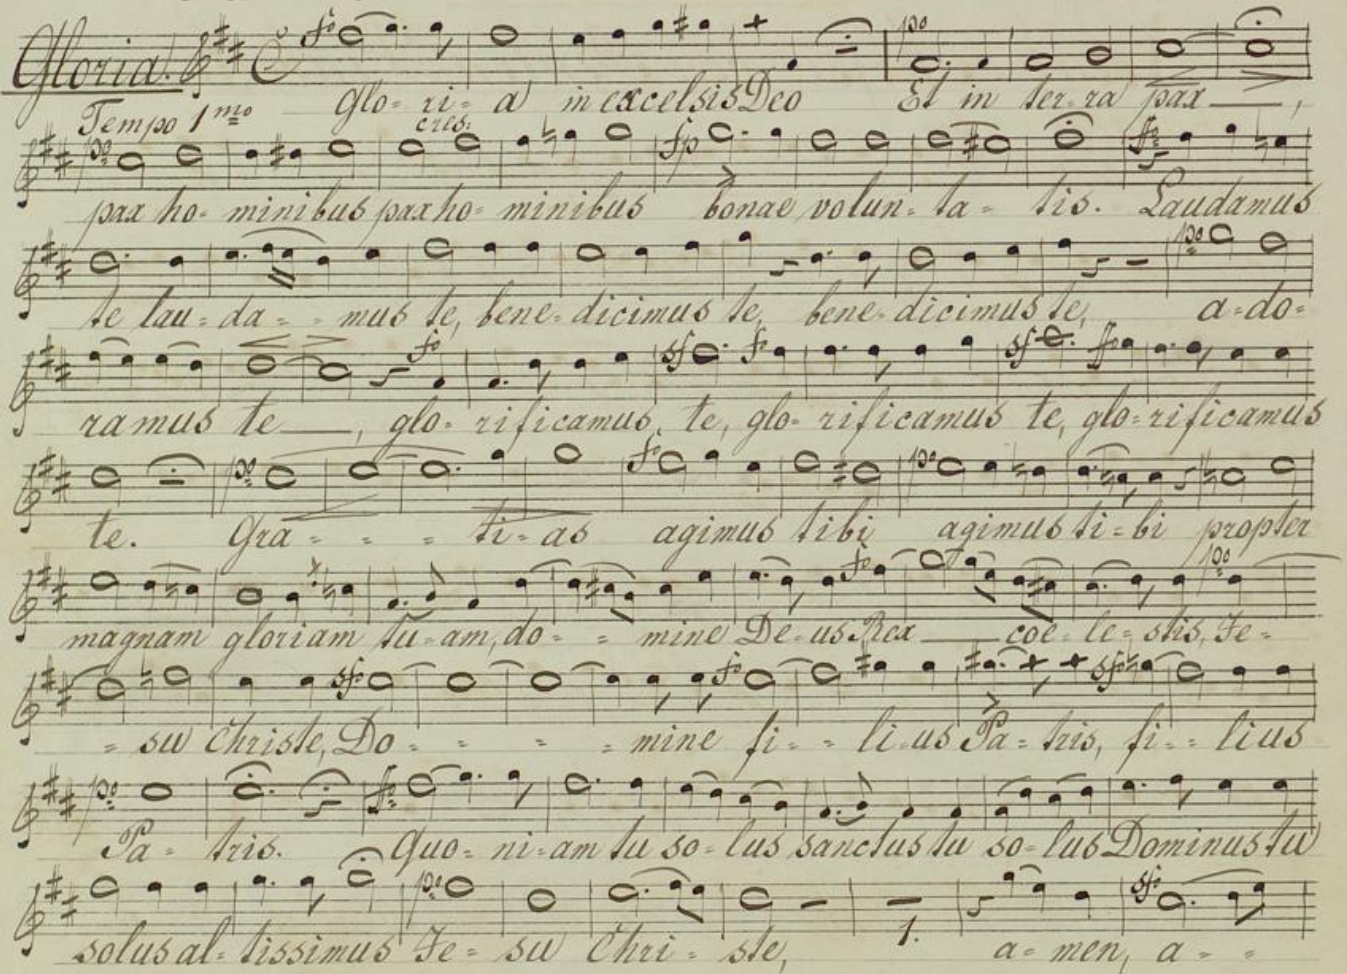 Gloria. fo po
Glo- ri- a in excelsis Deo Et in ter-ra pax ,
Tempo 1mo cres.
po fp fz
pax ho- minibus pax ho- minibus bonae volun- ta- tis. Laudamus
po
te lau-da- - mus te, bene-dicimus te, bene-dicimus te, a-do-
fo sf fo sf fo
ramus te , glo- rificamus, te, glo- rificamus te, glo-rificamus
po fo po
te. Gra- - - ti-as agimus tibi agimus ti-bi propter
fo po
magnam gloriam tu-am, do- - mine De-us Rex coe-le-stis, Je-
sf fo sfo
- su Christe, Do- - - - mine fi- - li-us Pa-tris, fi- - lius
po fz
Pa- tris. Quo- ni-am tu so-lus sanctus tu so-lus Dominus tu
po sf
solus al- tissimus Je- su Chri- ste, 1. a-men, a- -